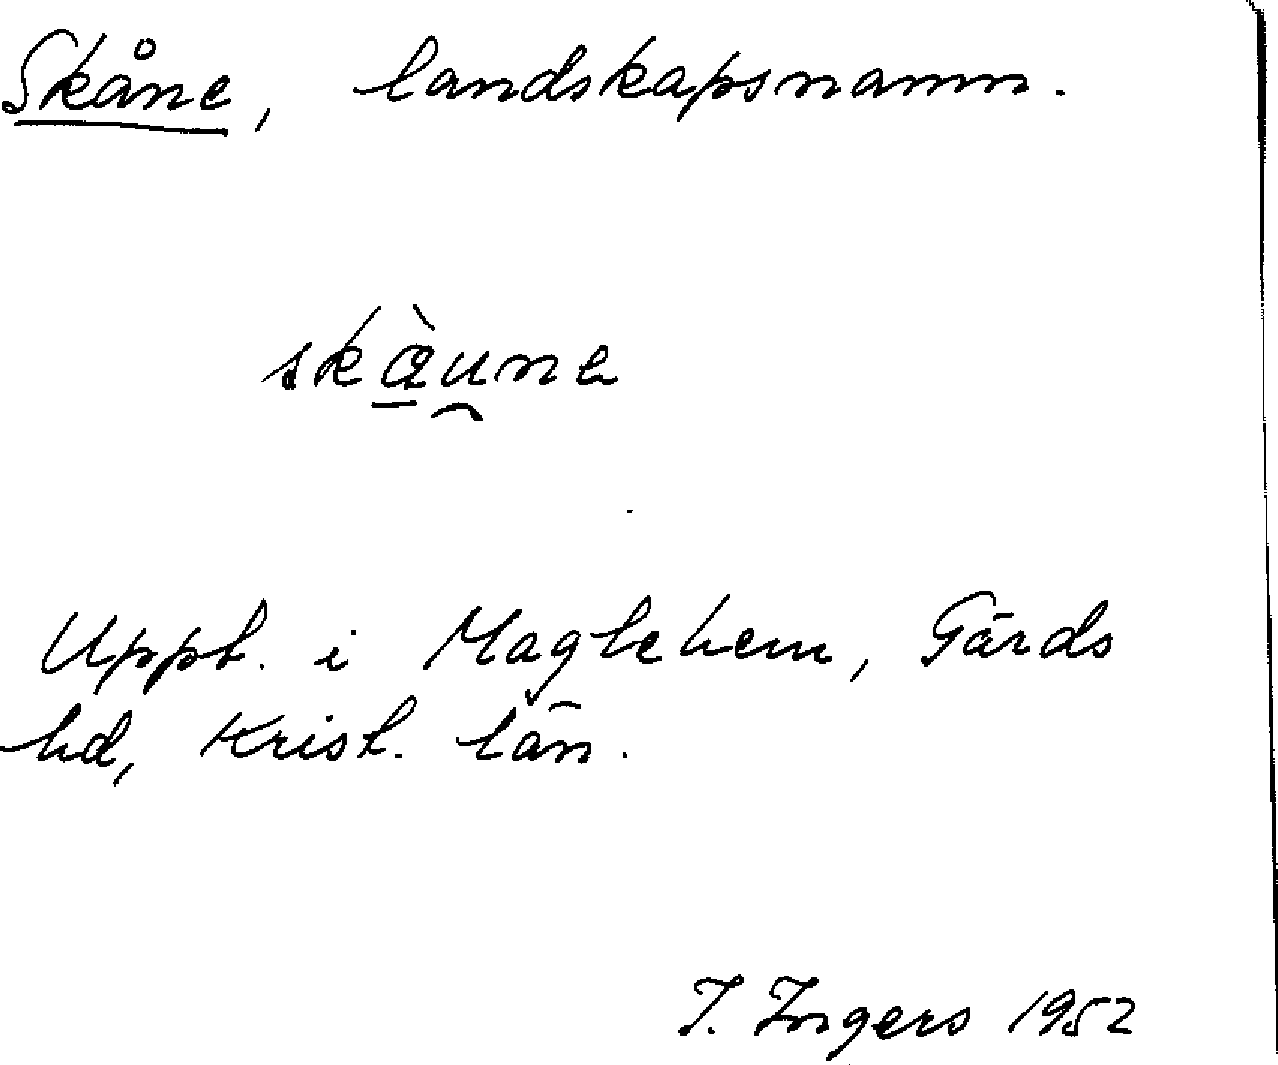 Skåne, landskapsnamn.
skæ̠̀u̯ne
Uppt. i Maglehem, Gärds
hd, Krist. län.
I. Ingers 1952